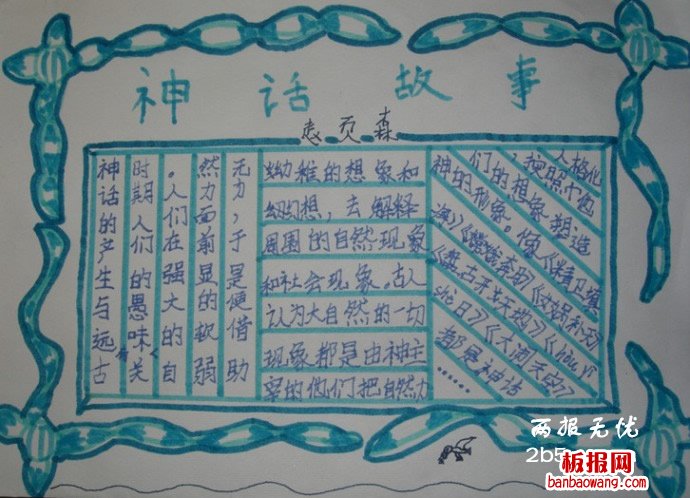 神话故事
神话的产生与远古
时期人们的愚昧有关
。人们在强大的自
然力面前显的软弱
无力,于是便借助
幼稚的想象和
幻想,去解释
周围的自然现象
和社会现象。古人
认为大自然的一切
现象都是由神主
宰的他们把自然力
人格化
,按照他
们的想象塑造
神的形象。像《精卫填
海》《嫦娥奔月》《女娲补天》
《盘古开天地》《hou yi
she日》《大闹天宫》
都是神话
……
两报无优
2b5
板报网
banbaowang.com